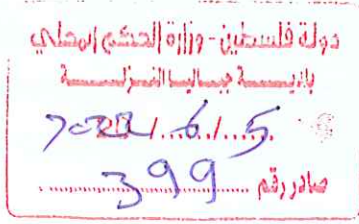 دولة فلسطين - وزارة الحكم المحلي
بلديـــة جباليـا النـزلـــة
2022/6/5
صادر رقم 399